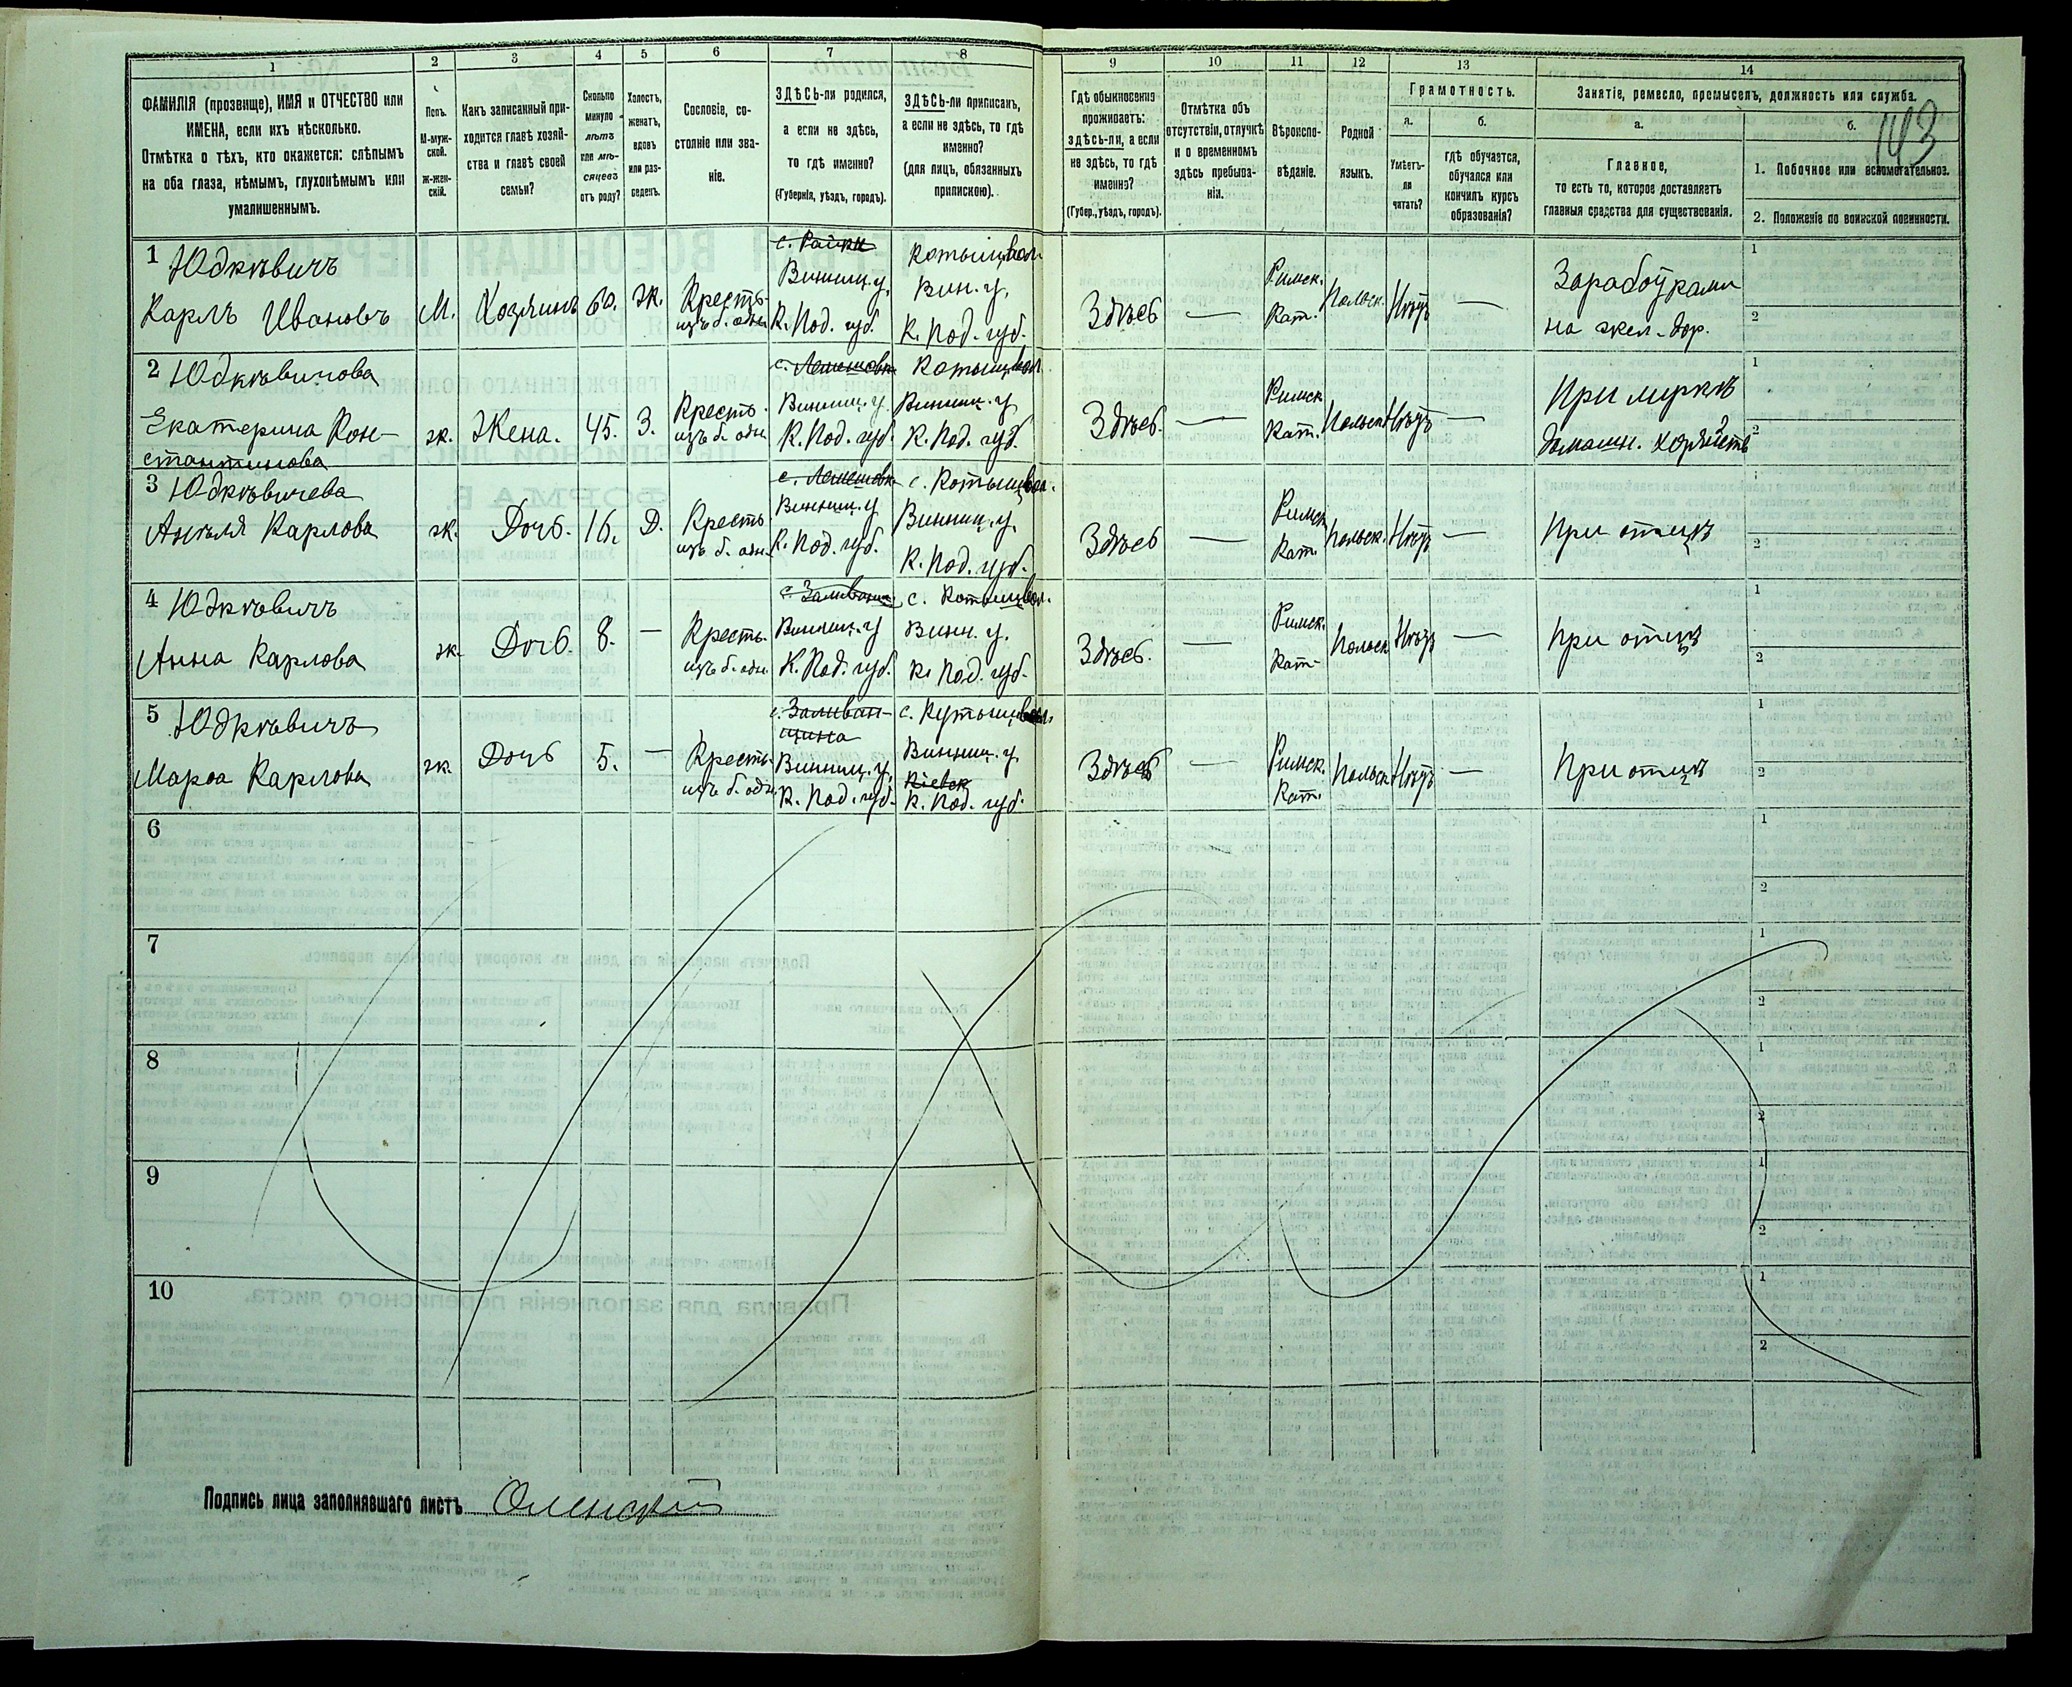 1 2 3 4 5 6 7 8 9 10 11 12 13 14
ФАМИЛІЯ (прозвище), ИМЯ и ОТЧЕСТВО или
ИМЕНА, если ихъ нѣсколько.
Отмѣтка о тѣхъ, кто окажется: слѣпымъ
на оба глаза, нѣмымъ, глухонѣмымъ или
умалишеннымъ.
Полъ.
М-муж-
ской.
Ж-жен-
скій.
Какъ записанный при-
ходится главѣ хозяй-
ства и главѣ своей
семьи?
Сколько
минуло
лѣтъ
или мѣ-
сяцевъ
отъ роду?
Холостъ,
женатъ,
вдовъ
или раз-
веденъ.
Сословіе, со-
стояніе или зва-
ніе.
ЗДѢСЬ-ли родился,
а если не здѣсь,
то гдѣ именно?
(Губернія, уѣздъ, городъ).
ЗДѢСЬ-ли приписанъ,
а если не здѣсь, то гдѣ
именно?
(для лицъ, обязанныхъ
припискою).
Гдѣ обыкновенно
проживаетъ:
здѣсь-ли, а если
не здѣсь, то гдѣ
именно?
(Губер., уѣздъ, городъ).
Отмѣтка объ
отсутствіи, отлучкѣ
и о временномъ
здѣсь пребыва-
ніи.
Вѣроиспо-
вѣданіе.
Родной
языкъ.
Грамотность.
а.
Умѣетъ-
ли
читать?
б.
гдѣ обучается,
обучался или
кончилъ курсъ
образованія?
Занятіе, ремесло, промыселъ, должность или служба.
а.
Главное,
то есть то, которое доставляетъ
главныя средства для существованія.
б.
143
1. Побочное или вспомогательное.
2. Положеніе по воинской повинности.
1 Юдкѣвичъ
Карлъ Ивановъ
М.
Хозяинъ
60.
ж.
Кресть.
изъ б. одн.
Винниц. у.
К. Под. губ.
Вин. у.
К. Под. губ.
Здѣсь
—
Римск.
Кат.
Польск.
Нѣтъ
—
Заработками
на жел. дор.
1
2
2 Юдкѣвичова
Екатерина Кон-
стантинова
ж.
Жена.
45.
З.
Кресть.
изъ б. одн.
Винниц. у.
К. Под. губ.
Винниц. у.
К. Под. губ.
Здѣсь.
—
Римск.
Кат.
Польск.
Нѣтъ
—
При мужѣ
домашн. хозяйств
1
2
3 Юдкѣвичева
Ангеля Карлова
ж.
Дочь.
16.
Д.
Кресть.
изъ б. одн.
Винниц. у.
К. Под. губ.
Винниц. у.
К. Под. губ.
Здѣсь
—
Римск.
Кат.
Польск.
Нѣтъ
—
При отцѣ
1
2
4 Юдкѣвичъ
Анна Карлова
ж.
Дочь.
8.
—
Кресть.
изъ б. одн.
Винниц. у.
К. Под. губ.
Винн. у.
К. Под. губ.
Здѣсь.
—
Римск.
Кат.
Польск.
Нѣтъ
—
При отцѣ
1
2
5 Юдкѣвичъ
Марѳа Карлова
ж.
Дочь
5.
—
Кресть.
изъ б. одн.
с. Заливан-
щина
Винниц. у.
К. Под. губ.
Винниц. у.
Кіевск
К. Под. губ.
Здѣсь
—
Римск.
Кат.
Польск.
Нѣтъ
—
При отцѣ
1
2
6
1
2
7
1
2
8
1
2
9
1
2
10
1
2
Подпись лица заполнявшаго листъ